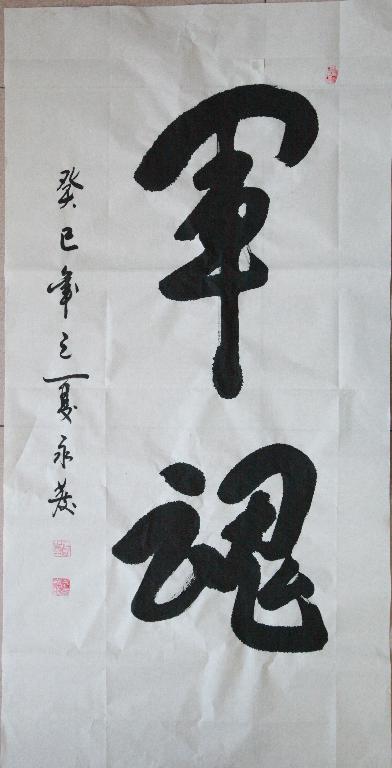 軍魂
癸巳年之夏永茂